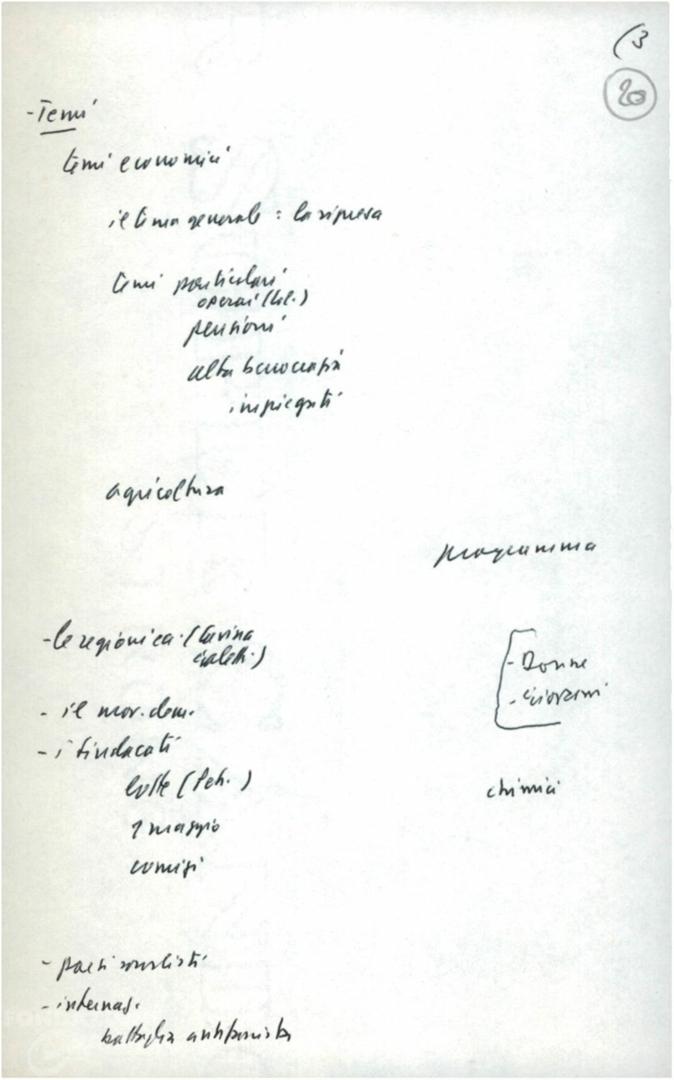 (3
20
- Temi
temi economici
il tema generale : la ripresa
temi particolari
operai (
pensioni
alta burocrazia
impiegati
agricoltura
programma
- le regioni ca. (
- Donne
- Giovani
- il mov. dem.
- i sindacati
lotte (Petr. )
chimici
1 maggio
comizi
- paesi socialisti
- internaz.
battaglia antifascista